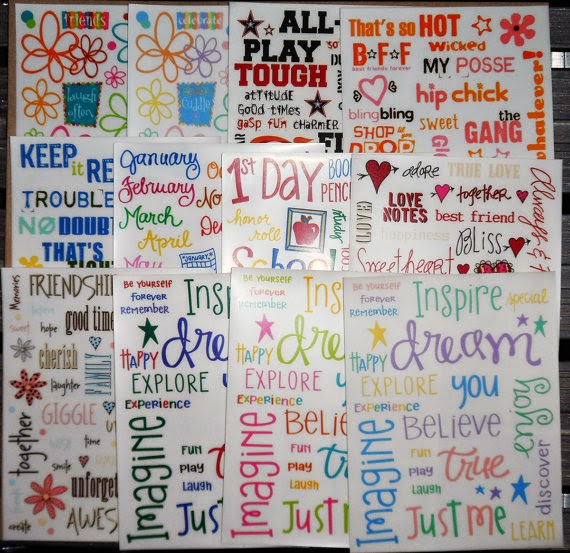 friends
laugh
often
celebrate
cuddle
ALL-
PLAY
TOUGH
attitude
Good times
gasp fun charmer
That's so HOT
wicked
B*F*F
best friends forever
MY POSSE
hip chick
blingbling
sweet
SHOP
DROP
the
GANG
whatever!
KEEP it RE
TROUBLE
NO DOUB
THAT'S
January
February
March
April
May
JANUARY
1ST DAY
BOO
PENC
honor
roll
study
School
adore
TRUE LOVE
LOVE
NOTES
together
LOVED
best friend
happiness
BLISS
Sweetheart
Always &
Memories
FRIENDSHIP
sweet
hope
good time
cherish
FAMILY
laughter
GIGGLE
together
time
smile
unforget
create
AWES
BE YOURSELF
FOREVER
REMEMBER
Inspi
HAPPY
dre
EXPLORE
EXPERIENCE
Imagine
BE
FUN
Play
Laugh
Just
BE YOURSELF
FOREVER
REMEMBER
Inspi
HAPPY
dre
EXPLORE
EXPERIENCE
Imagine
BELIE
FUN
Play
Laugh
tr
Just
BE YOURSELF
FOREVER
REMEMBER
Inspire
special
HAPPY
dream
EXPLORE
you
EXPERIENCE
wishes
Imagine
BELIEVE
FUN
Play
Laugh
true
discover
Just me
LEARN